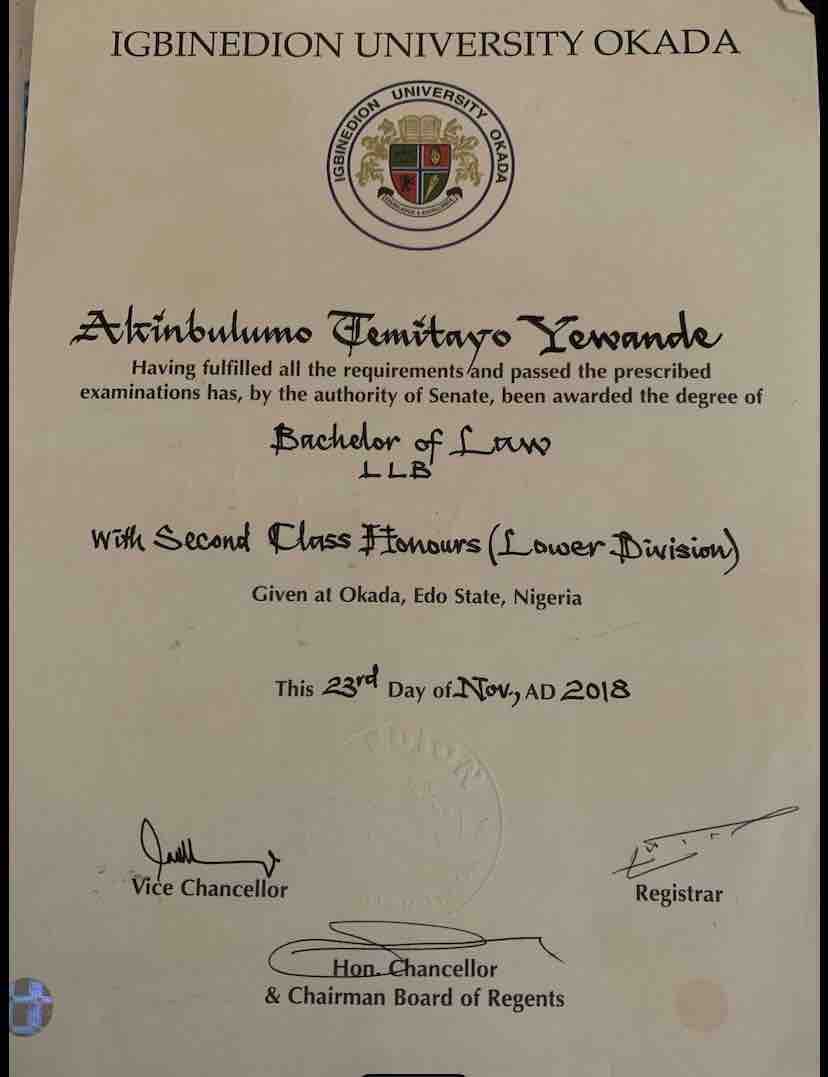 IGBINEDION UNIVERSITY OKADA
IGBINEDION UNIVERSITY OKADA
Akinbulumo Temitayo Yewande
Having fulfilled all the requirements and passed the prescribed
examinations has, by the authority of Senate, been awarded the degree of
Bachelor of Law
LLB
With Second Class Honours (Lower Division)
Given at Okada, Edo State, Nigeria
This 23rd Day of Nov., AD 2018
Vice Chancellor
Registrar
Hon. Chancellor
& Chairman Board of Regents